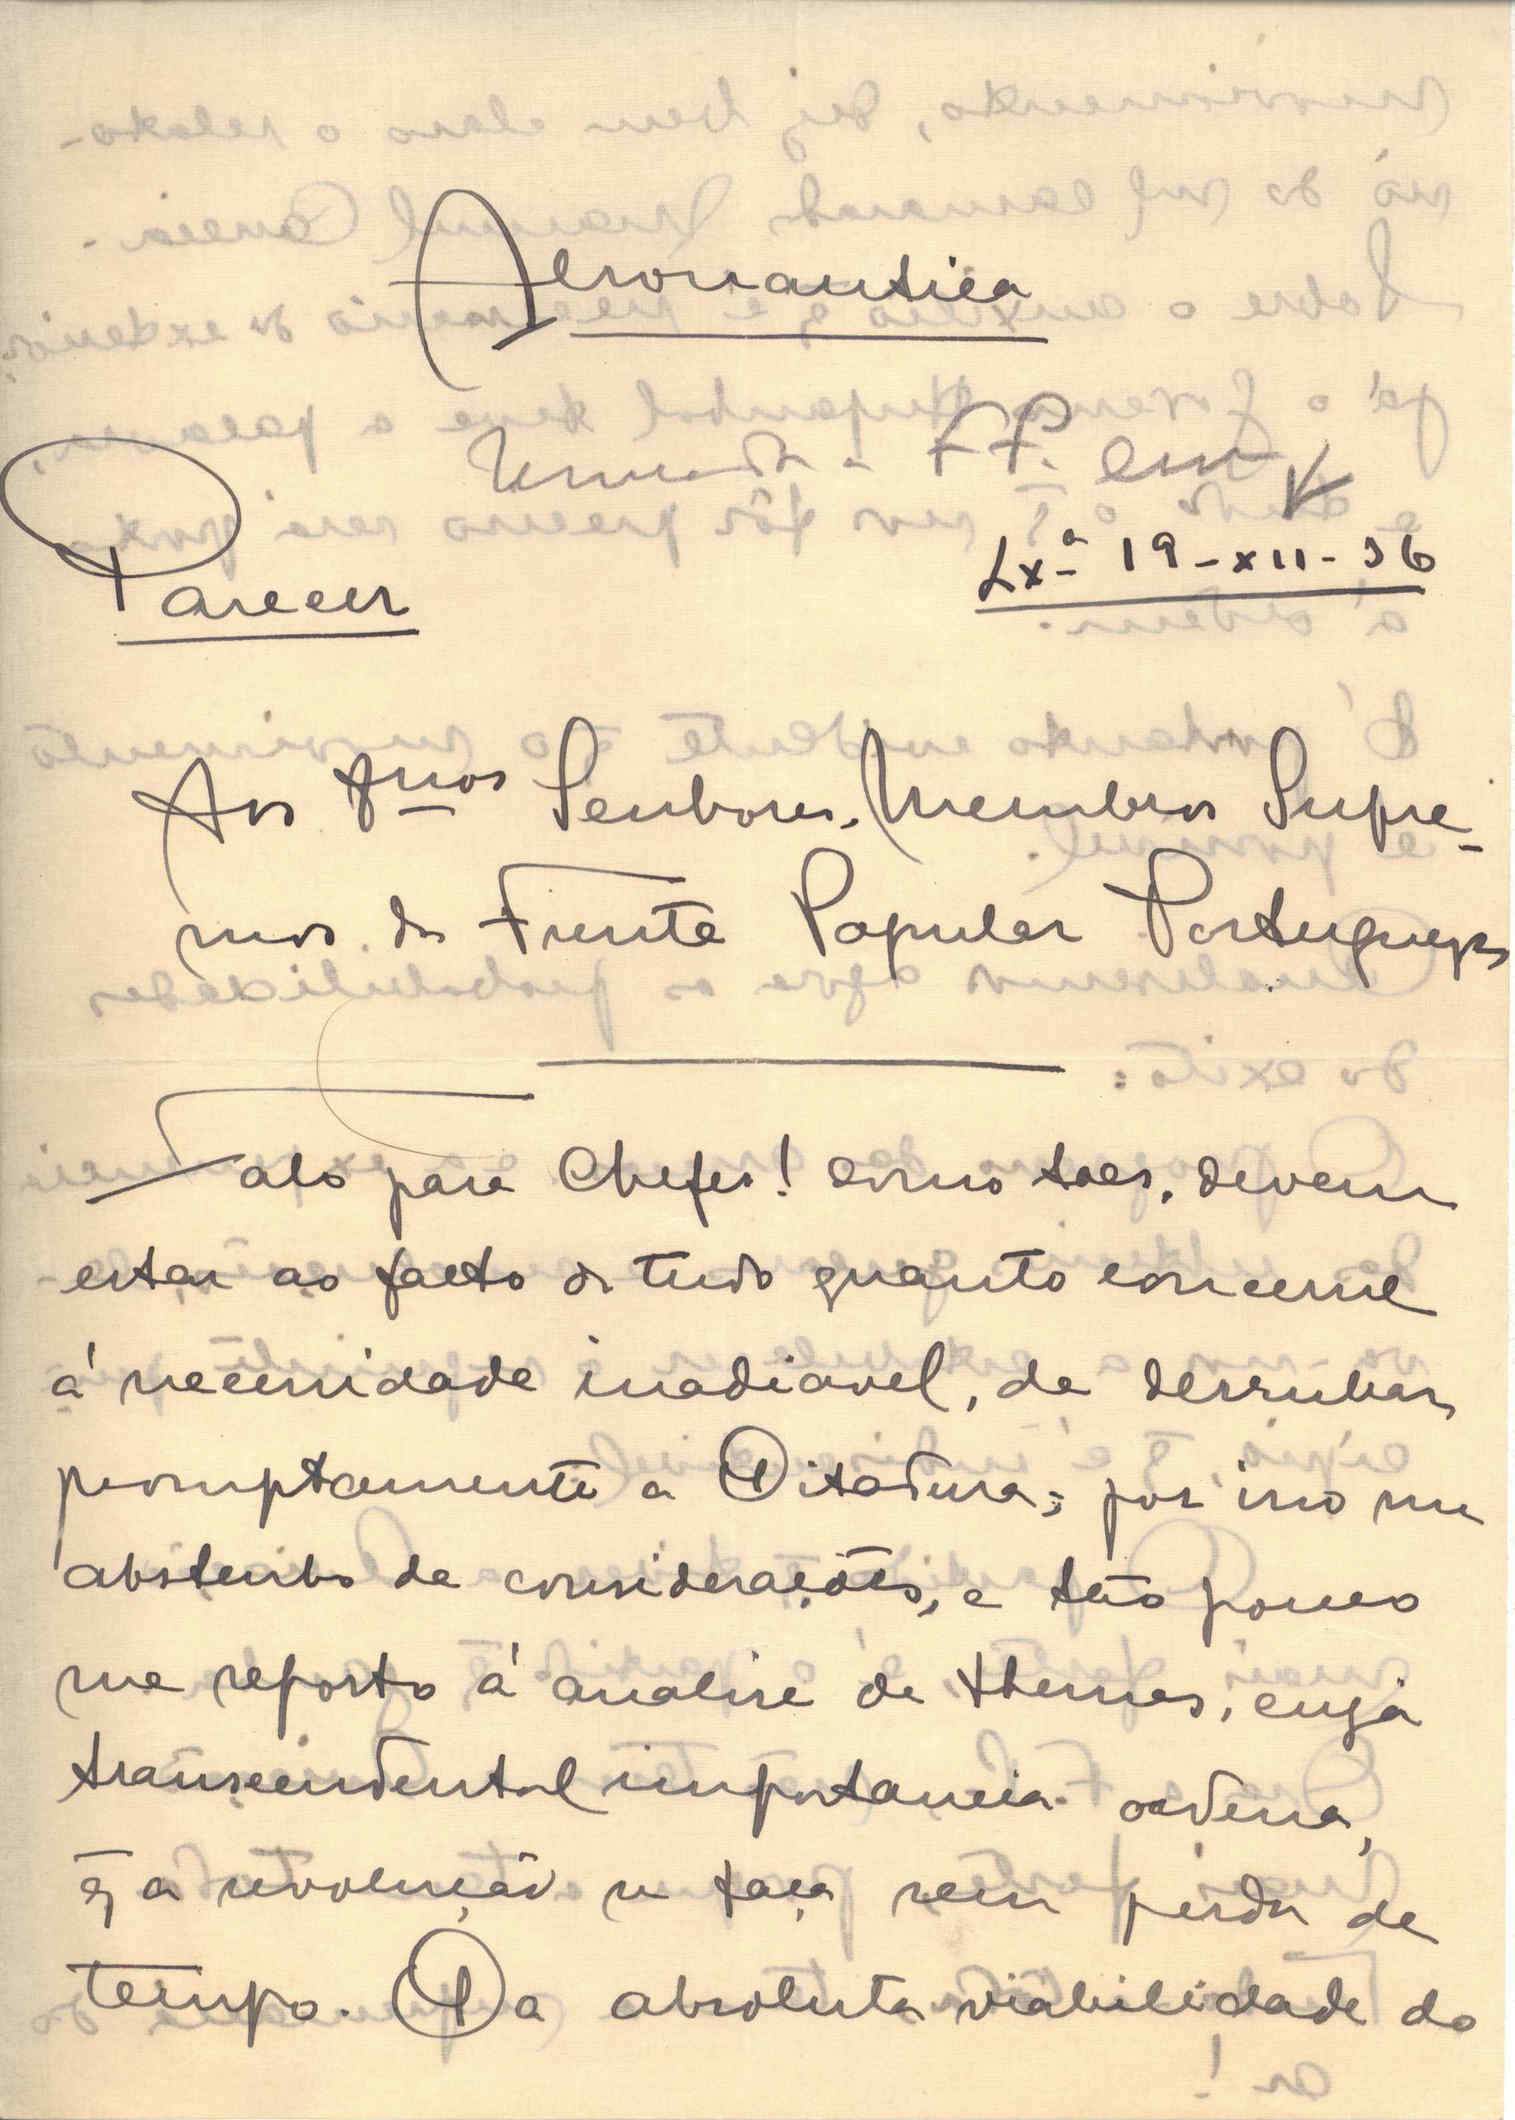 Aeronautica
F.P. em
Parecer
Lxª 19-XII-36
Aos Senhores, Membros Supre-
mos da Frente Popular Portuguesa
Falo para Chefes! Como taes, devem
estar ao facto de tudo quanto concerne
á necessidade inadiavel, de derrubar
promptamente a Ditadura; por isso me
abstenho de considerações, e tão pouco
me reporto á analise de themas, cuja
transcendental importancia ordena,
q̄ a revolução se faça sem perda de
tempo. Da absoluta viabilidade do